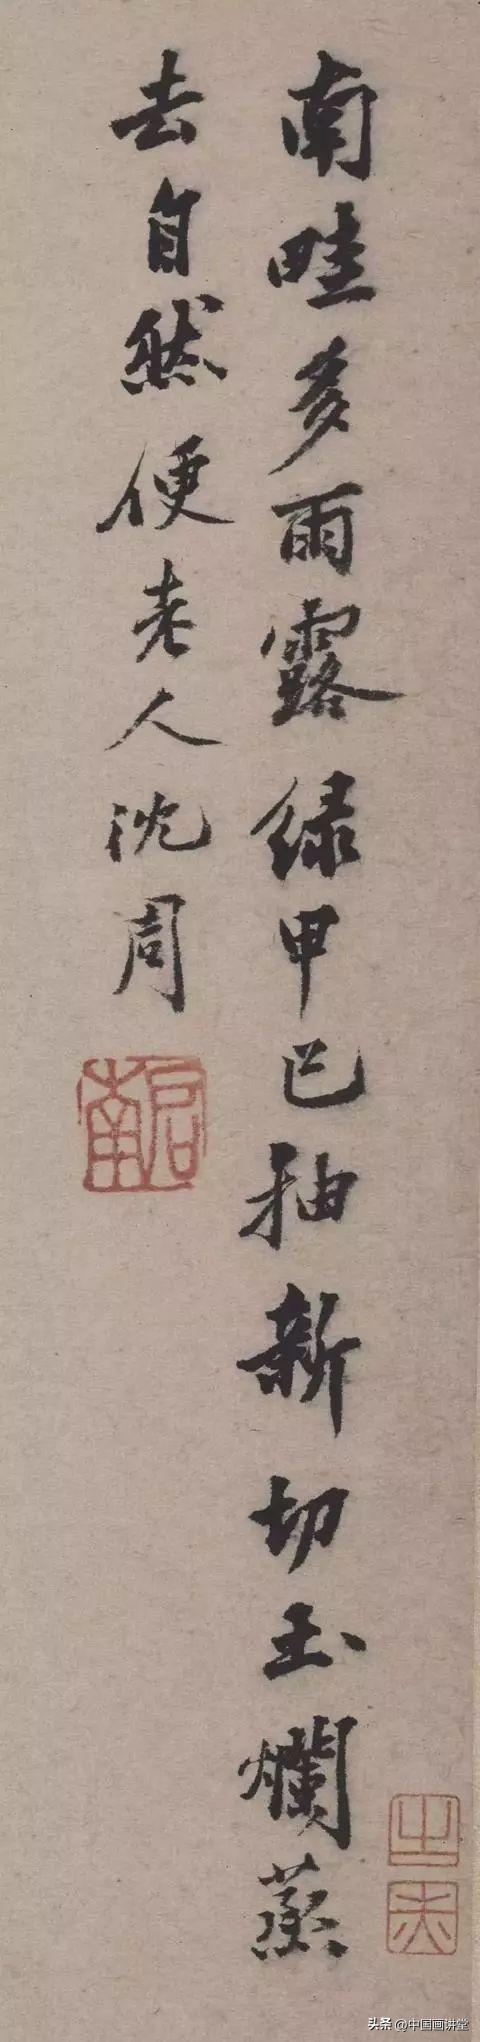 南畦多雨露绿甲已抽新切玉爛蒸
去自然便老人沈周
啟南
头条 @中国画讲堂